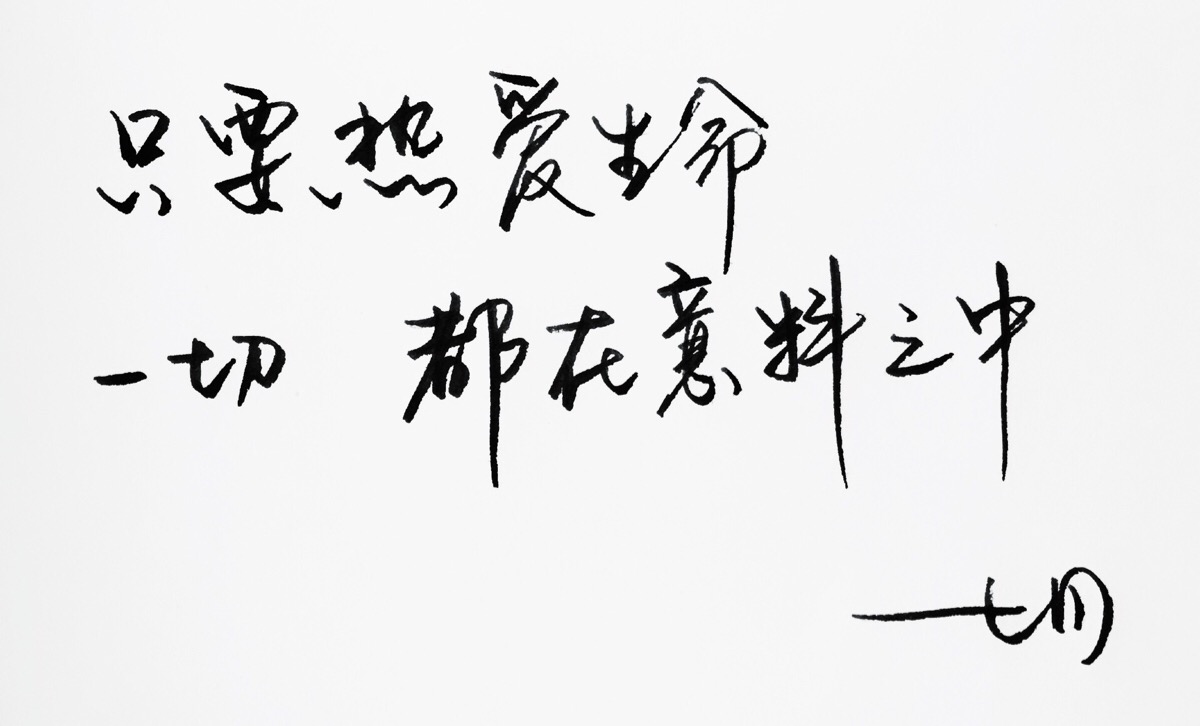 只要热爱生命
一切 都在意料之中